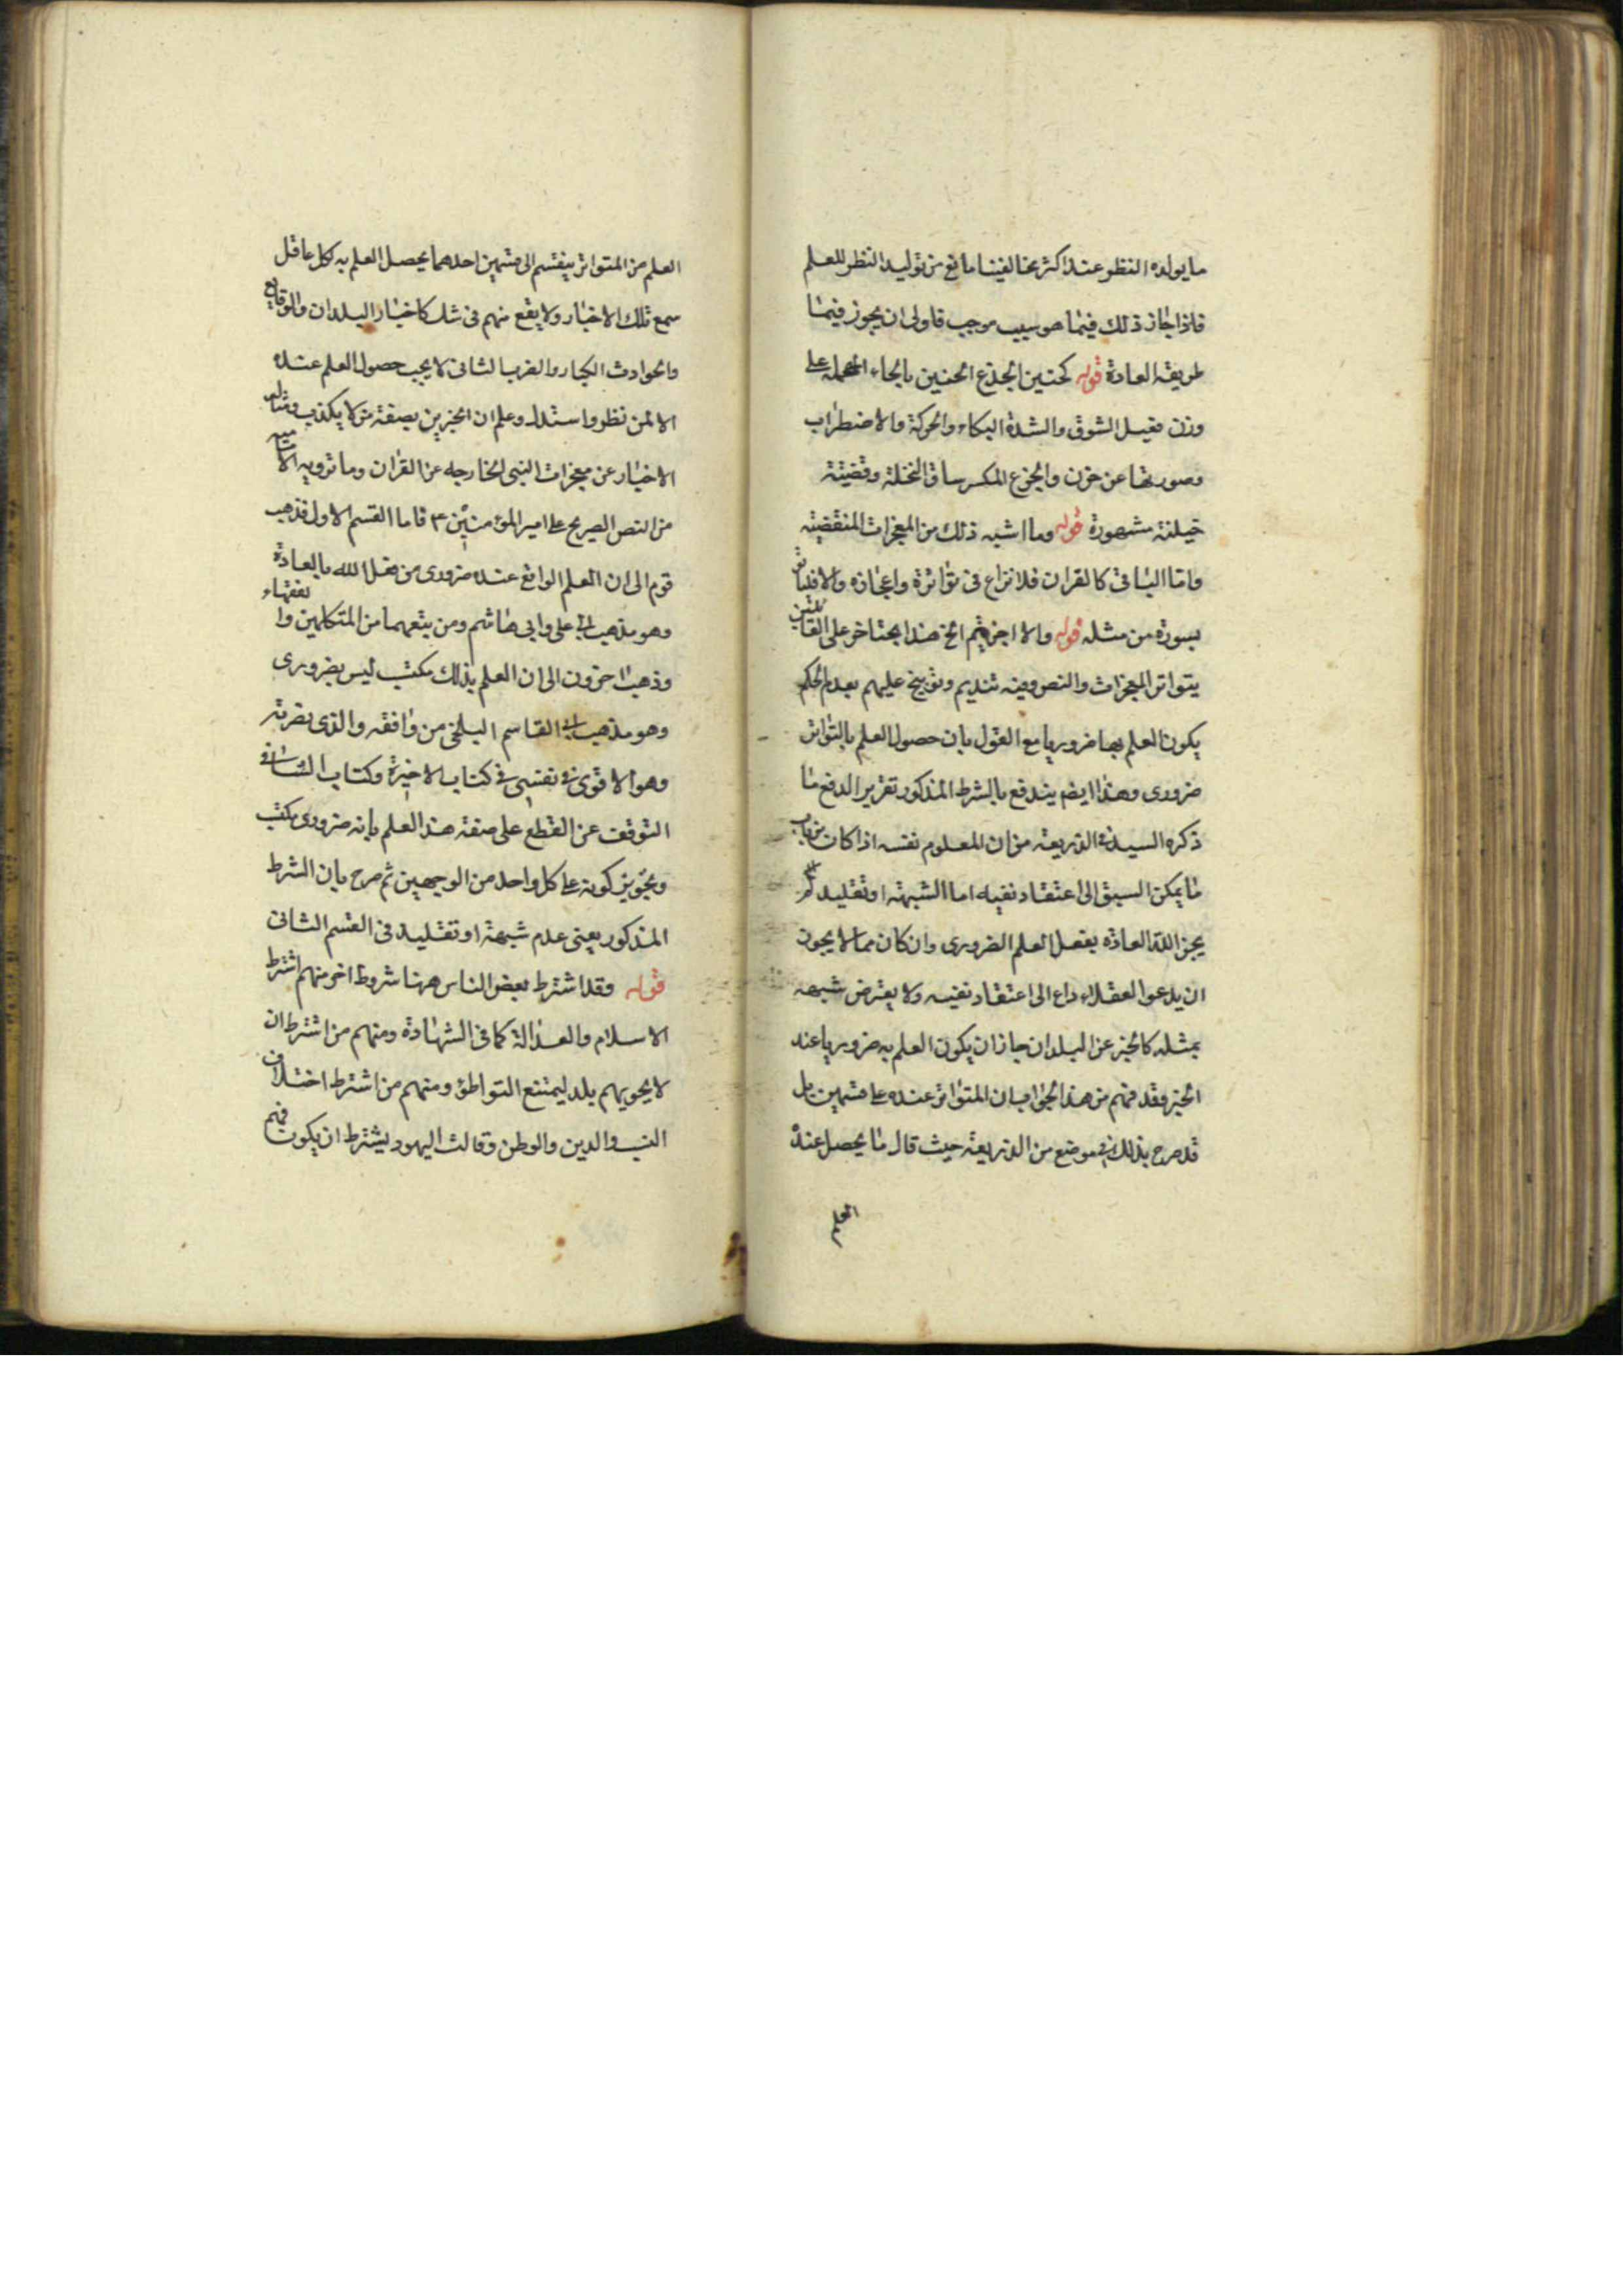 ما يولده النظر عند اكثر مخالفينا مانع من توليد النظر للعلم
فاذا جاز ذلك فيما هو سبب موجب فاولى ان يجوز فيما
طريقه العادة قوله كحنين الجذع الحنين بالحاء المهملة على
وزن فعيل الشوق والشدة البكاء والحركة والاضطراب
وصورتها عن حزن والجزع المكسر ساق النخلة وقضيته
حيلنة مشهورة قوله وما اشبه ذلك من المعجزات المنقضيته
واما الباقى كالقران فلا نزاع فى تواتره واعجازه والاتيان
بسورة من مثله قوله والا اجزيتم الخ هذا بحث اخر على القائلين
بتواتر المعجزات والنصوص فيه تنديم وتوبيخ عليهم بعدم الحكم
يكون العلم بها ضروريا مع القول بان حصول العلم بالتواتر
ضرورى وهذا ايضم يندفع بالشرط المذكور تقرير الدفع ما
ذكره السيد فى الذريعة من ان المعلوم نفسه اذا كان من باب
ما يمكن السبق الى اعتقاد نفيه اما الشبهة او تقليد لم
يجز الله العادة بفعل العلم الضرورى وان كان مما لا يجوز
ان يدعو العقلاء داع الى اعتقاد نفيه ولا يعترض شبهه
بمثله كالخبر عن البلدان جاز ان يكون العلم به ضروريا عند
الخبر فقد فهم من هذا الجواب ان المتواتر عنده على قسمين بل
قد صرح بذلك فى موضع من الذريعة حيث قال ما يحصل عنده
العلم من المتواتر ينقسم الى قسمين احدهما يحصل العلم به لكل عاقل
سمع تلك الاخبار ولا يقع منهم فى شك كاخبار البلدان والوقايع
والحوادث الكبار والضرب الثانى لا يجب حصول العلم عنده
الا لمن نظر واستدل وعلم ان المخبرين بصفة من لا يكذب ومثاله
الاخبار عن معجزات النبى الخارجه عن القران وما ترويه الامامية
من النص الصريح على امير المؤمنين ع فاما القسم الاول فذهب
قوم الى ان العلم الواقع عنده ضرورى من فعل الله بالعادة
وهو مذهب ابى على وابى هاشم ومن يتبعهما من المتكلمين والفقهاء
وذهب اخرون الى ان العلم بذلك مكتسب ليس بضرورى
وهو مذهب ابى القاسم البلخى من وافقه والذى نصرته
وهو الاقوى فى نفسى فى كتاب الاخيرة وكتاب الشافى
التوقف عن القطع على صفة هذا العلم بانه ضرورى مكتسب
وتجويز كونه على كل واحد من الوجهين ثم صرح بان الشرط
المذكور يعنى عدم شبهة او تقليد فى القسم الثانى
قوله وقد اشترط بعض الناس ههنا شروط اخر منهم اشترط
الاسلام والعدالة كما فى الشهادة ومنهم من اشترط ان
لا يحويهم بلد ليمتنع التواطؤ ومنهم من اشترط اختلاف
النسب والدين والوطن وقالت اليهود يشترط ان يكون فيهم